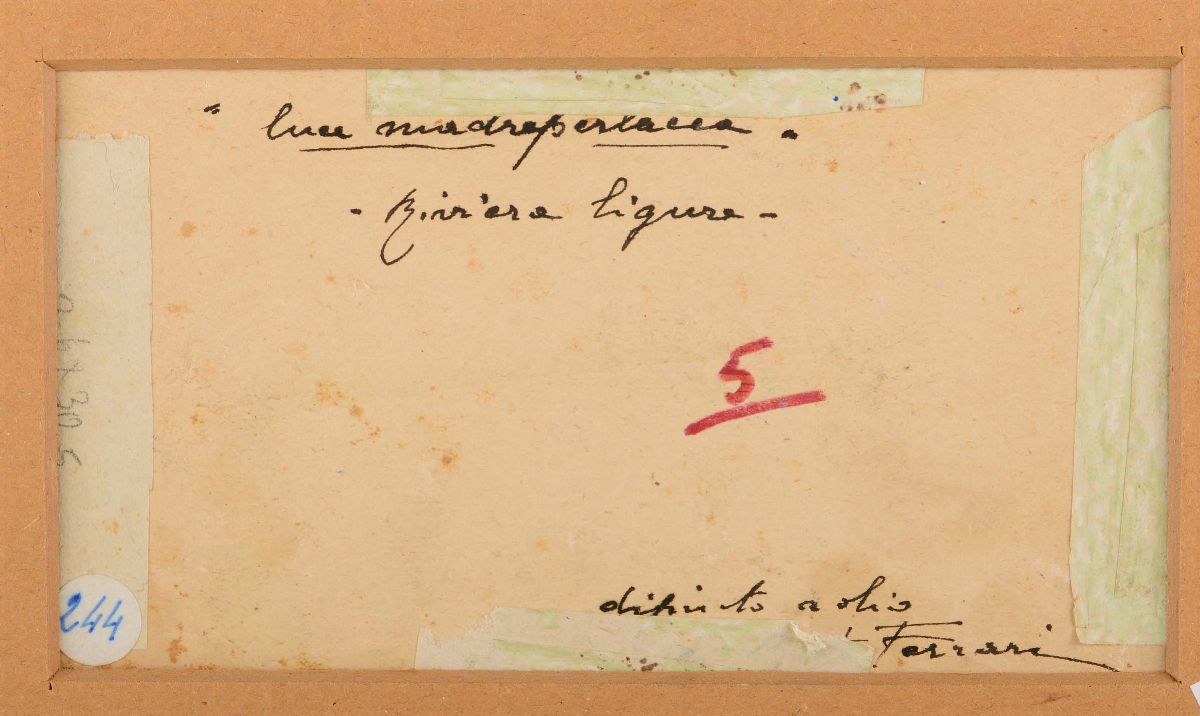 " luce madreperlacea "
- Riviera ligure -
5
244
dipinto a olio
Ferrari